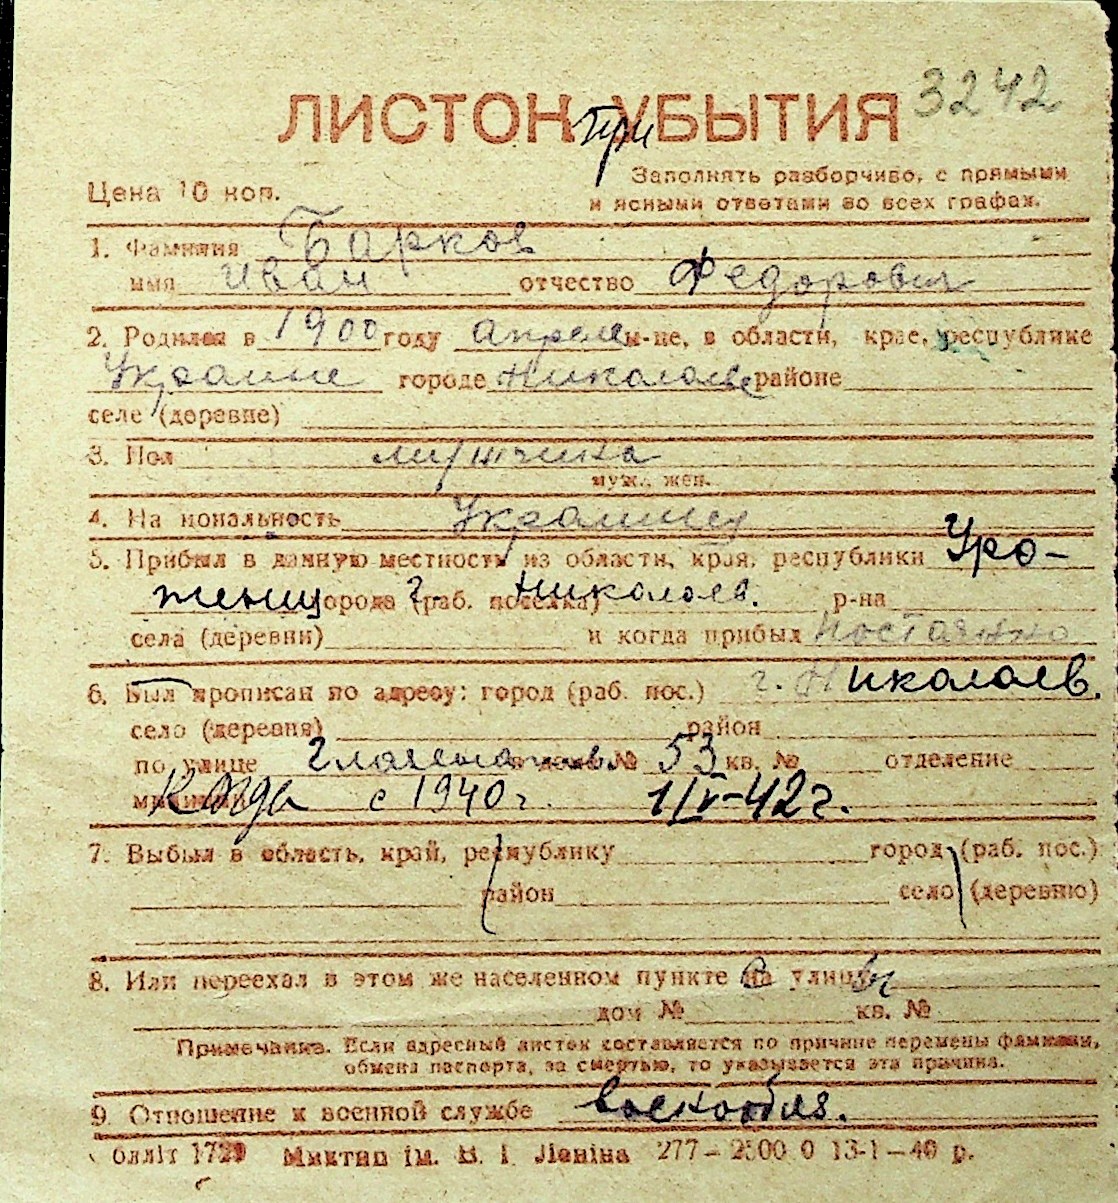 ЛИСТОК при УБЫТИЯ 3242
Цена 10 коп.
Заполнять разборчиво, с прямыми
и ясными ответами во всех графах.
1. Фамилия Барков
имя Иван отчество Федорович
2. Родился в 1900 году апреле м-це, в области, крае, республике
Украине городе Николаеве районе
селе (деревне)
3. Пол мужчина
муж., жен.
4. Национальность Украинец
5. Прибыл в данную местность из области, края, республики Уро-
женец города (раб. поселка) г. Николаев. р-на
села (деревни) и когда прибыл постоянно
6. Был прописан по адресу: город (раб. пос.) г. Николаев.
село (деревня) район
по улице дом № 53 кв. № отделение
милиции Когда с 1940 г. 1/IV-42 г.
7. Выбыл в область, край, республику город (раб. пос.)
район село (деревню)
8. Или переехал в этом же населенном пункте на улицу
дом № кв. №
Примечание. Если адресный листок составляется по причине перемены фамилии,
обмена паспорта, за смертью, то указывается эта причина.
9. Отношение к военной службе военнообяз.
облліт 1729 Миктип ім. В. І. Леніна 277—2500 0 13-1—40 р.